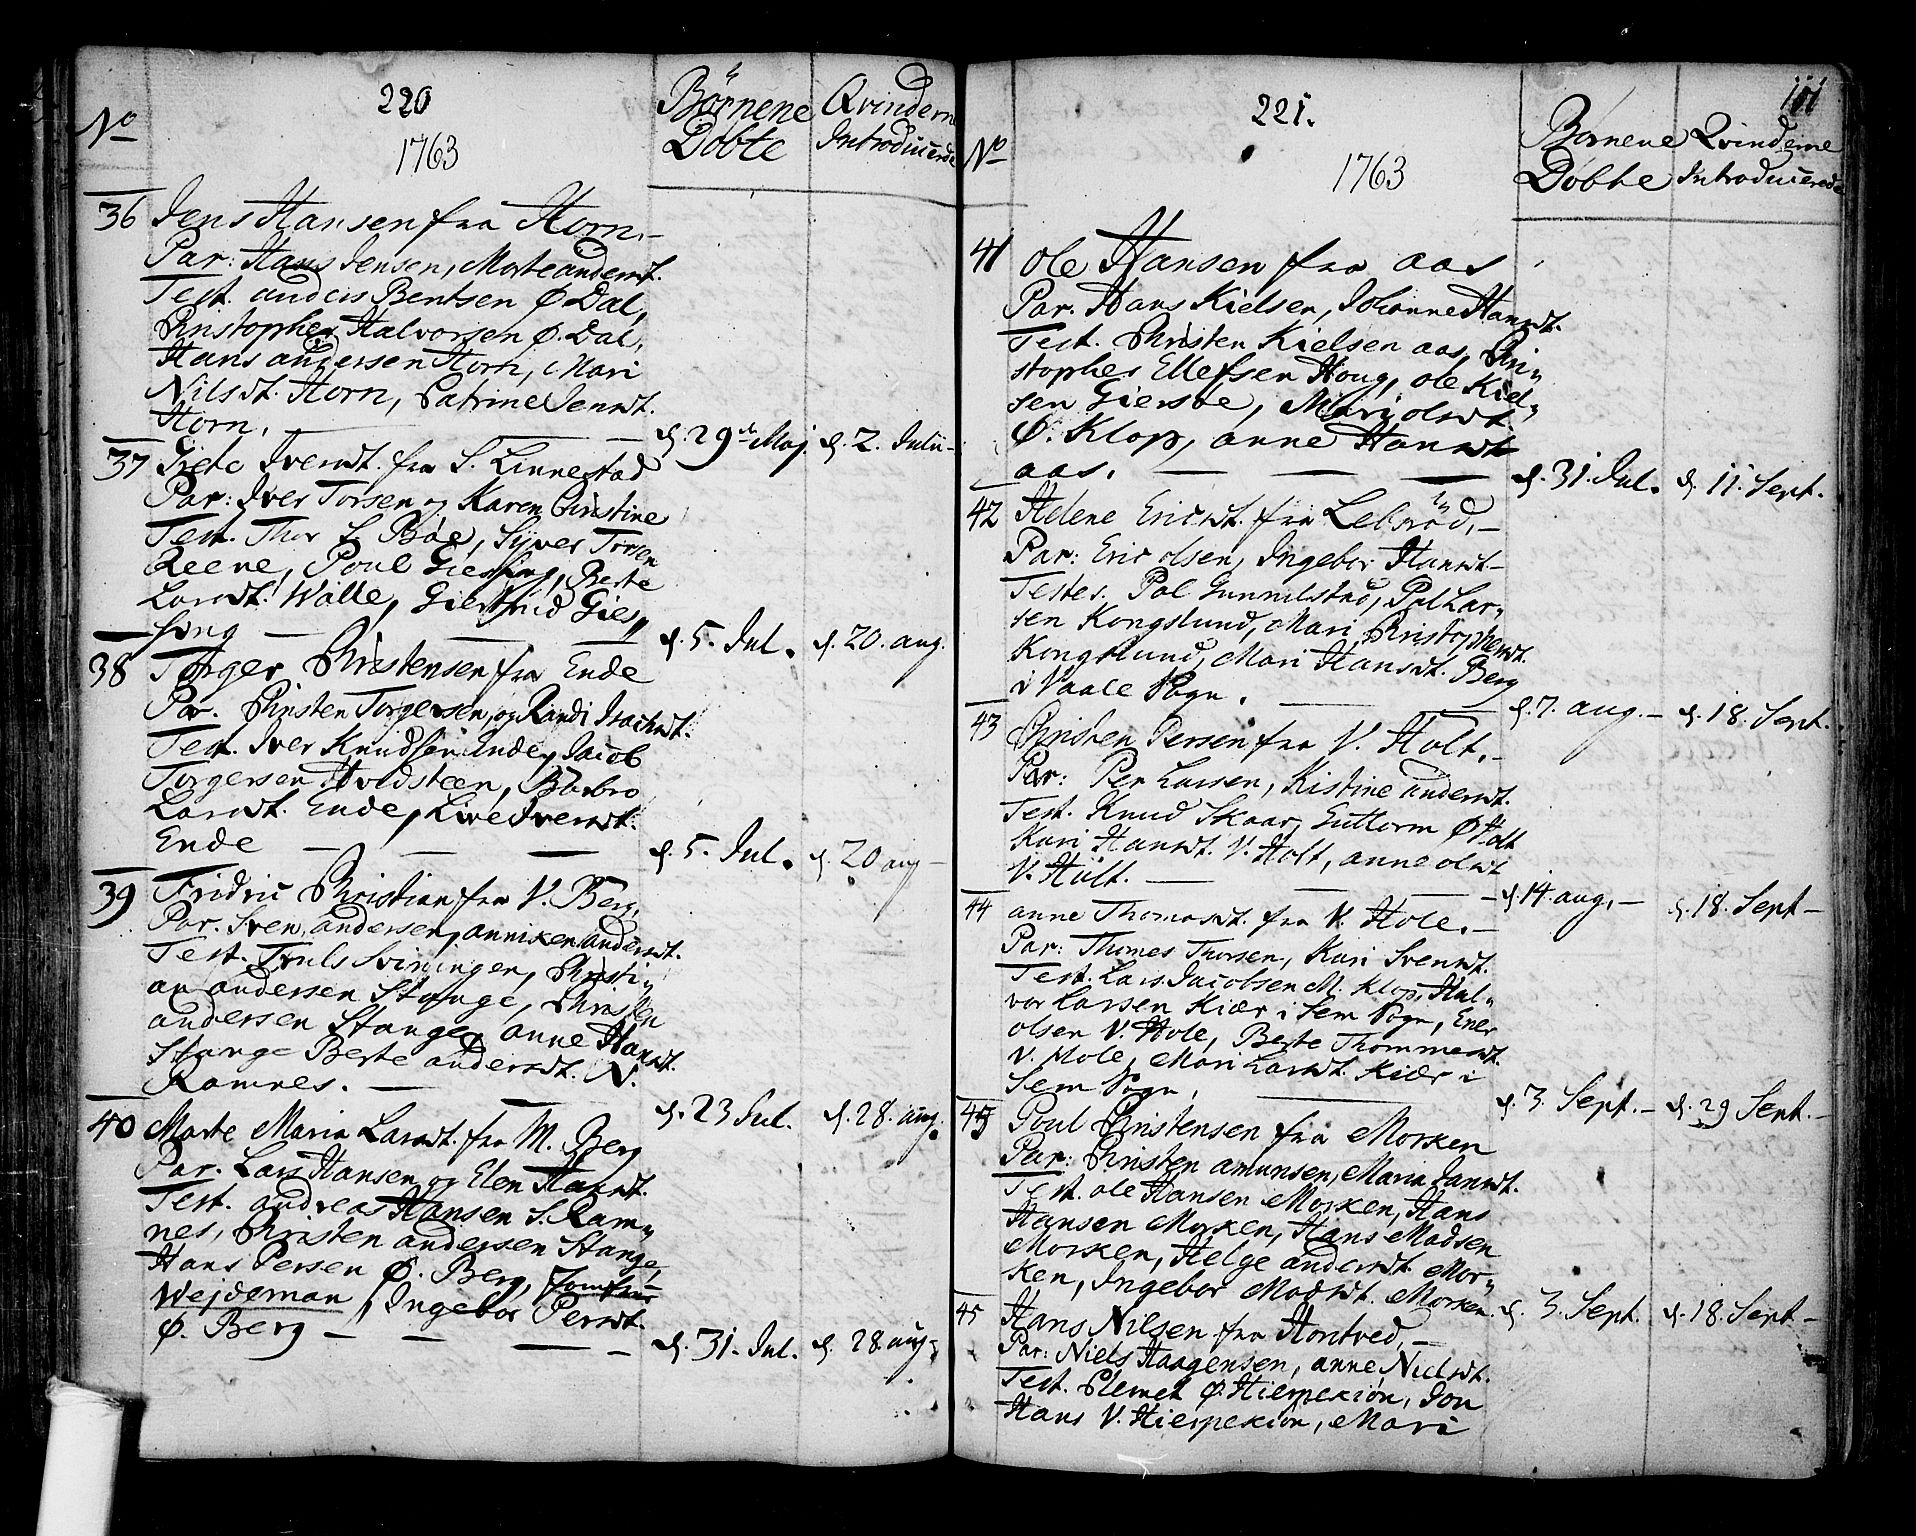 220
1763
No
Børnene Døbte
Qvinderne Introducerede
36 Jens Hansen fra Horn.
Par: Hans Jensen, Marte andersdt.
Test. anders Bentsen Ø. Dal,
Christopher Halvorsen Ø. Dal,
Hans andersen Horn, Mari
Nilsdt. Horn, Catrine Jensdt.
Horn.
d. 29de Maj. d. 2. Julii
37 Grete Iversdt. fra S. Linnestad
Par: Iver Torsen og Karen Christine
Test. Thor S. Bøe, Syver Torsen
Reene, Poul Giesing, Berte
Larsdt. Wälle, Giertrud Gies„
sing
d. 5. Jul. d. 20. aug.
38 Torger Christensen fra Ende
Par. Christen Torgersen, og Randi Isachsdt.
Test. Iver Knudsen Ende, Jacob
Torgersen Hvidsteen, Barbro
Larsdt. Ende, Live Iversdt.
Ende
d. 5. Jul. d. 20 aug
39 Fridric Christian fra V. Berg,
Par. Sven andersen, anniken andersdt.
Test. Truls Sviningen, Christi„
an andersen Stange, Christen
andersen Stange, anne Hansdt.
Stange Berte andersdt. N.
Ramnes.
d. 23 Jul. d. 28. aug.
40 Marte Maria Larsdt. fra M. Berg
Par. Lars Hansen og Elen Hansdt.
Test. andreas Hansen S. Ram„
nes, Christen andersen Stange,
Hans Persen Ø. Berg, Jomfru
Wejdeman, Ingebor Persdt.
Ø. Berg
d. 31. Jul. d. 28 aug
221.
1763
No
Børnene Døbte
Qvinderne Introducerede
41 Ole Hansen fra aas
Par. Hans Kielsen, Johanne Hansdt.
Test. Christen Kielsen aas, Chri„
stopher Ellefsen Houg, ole Kiel„
sen Giersøe, Mari olsdt.
Ø. Klop, anne Hansdt
aas.
d. 31. Jul. d. 11. Sept.
42 Helene Ericsdt. fra Lebsrød,
Par: Eric olsen, Ingebor Hansdt
Testes. Pol Gunnelstad, Pol Lar„
sen Kongslund, Mari Christophersdt.
Kongslund, Mari Hansdt. Berg
i Vaale Sogn.
d. 7. aug. d. 18. Sept.
43 Christen Persen fra V. Holt.
Par: Per Larsen, Kistine andersdt.
Test. Knud Skaar, Guttorm Ø Holt
Kari Hansdt. V. Holt, anne olsdt
V. Hult.
d. 14. aug. d. 18. Sept
44 anne Thomasdt. fra V. Hole.
Par: Thomes Thorsen, Kari Svensdt.
Test. Lars Jacobsen M. Klop, Hal„
vor Larsen Kiær i Sem Sogn, Ener
olsen V. Hole, Berte Thommesdt.
V. Hole, Mari Larsdt. Kiær i
Sem Sogn.
d. 3. Sept. d. 29 Sept.
45 Poul Christensen fra Morken
Par: Christen amunsen, Maria Jansdt.
Test. ole Hansen Morken, Hans
Hansen Morken, Hans Madsen
Morken, Helge andersdt. Mor„
ken, Ingebor Madsdt. Morken.
d. 3. Sept. d. 18. Sept
45 Hans Nilsen fra Hontved,
Par: Niels Haagensen, anne Nielsdt.
Test. Clemet Ø. Hierpekiøn, Jon
Hans V. Hierpekiøn, Mari